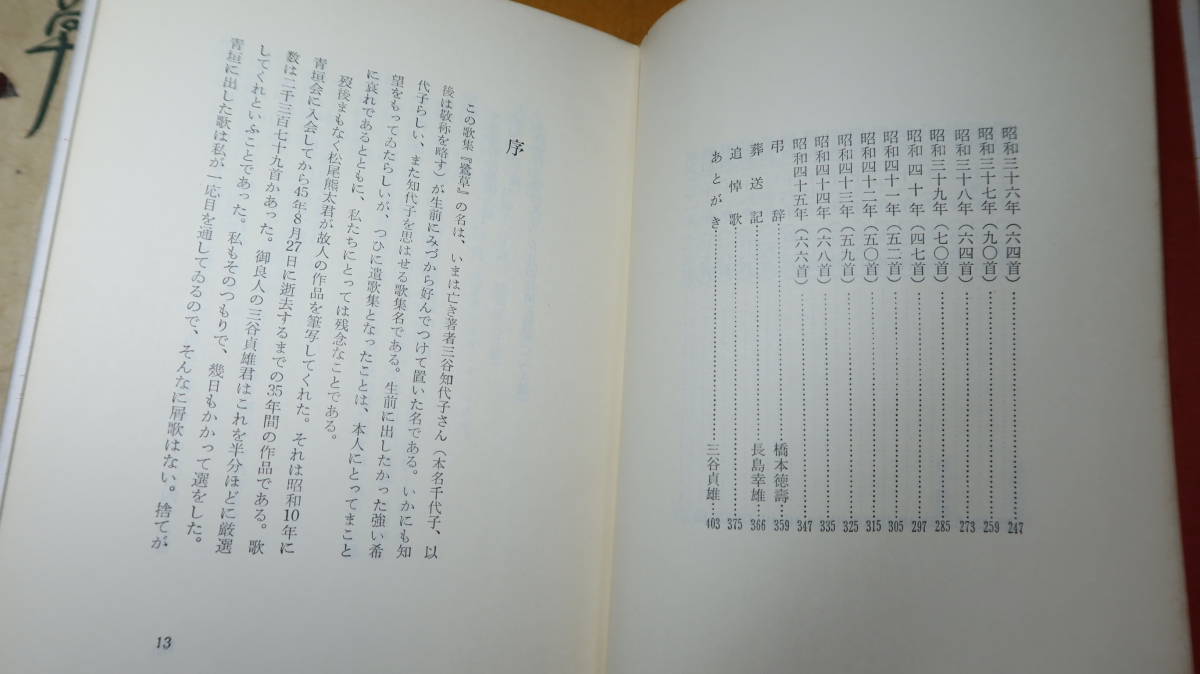 昭和三十六年（六四首）……247
昭和三十七年（九〇首）……259
昭和三十八年（六四首）……273
昭和三十九年（七〇首）……285
昭和四十年（四七首）……297
昭和四十一年（五二首）……305
昭和四十二年（五〇首）……315
昭和四十三年（五九首）……325
昭和四十四年（六八首）……335
昭和四十五年（六六首）……347
弔辞……橋本徳壽…359
葬送記……長島幸雄…366
追悼歌……375
あとがき……三谷貞雄…403
序
この歌集『鷺草』の名は、いまは亡き著者三谷知代子さん（本名千代子、以
後は敬称を略す）が生前にみづから好んでつけて置いた名である。いかにも知
代子らしい、また知代子を思はせる歌集名である。生前に出したかった強い希
望をもってゐたらしいが、つひに遺歌集となったことは、本人にとってまこと
に哀れであるとともに、私たちにとっては残念なことである。
歿後まもなく松尾熊太君が故人の作品を筆写してくれた。それは昭和10年に
青垣会に入会してから45年8月27日に逝去するまでの35年間の作品である。歌
数は二千三百七十九首かあった。御良人の三谷貞雄君はこれを半分ほどに厳選
してくれといふことであった。私もそのつもりで、幾日もかかって選をした。
青垣に出した歌は私が一応目を通してゐるので、そんなに屑歌はない。捨てが
13